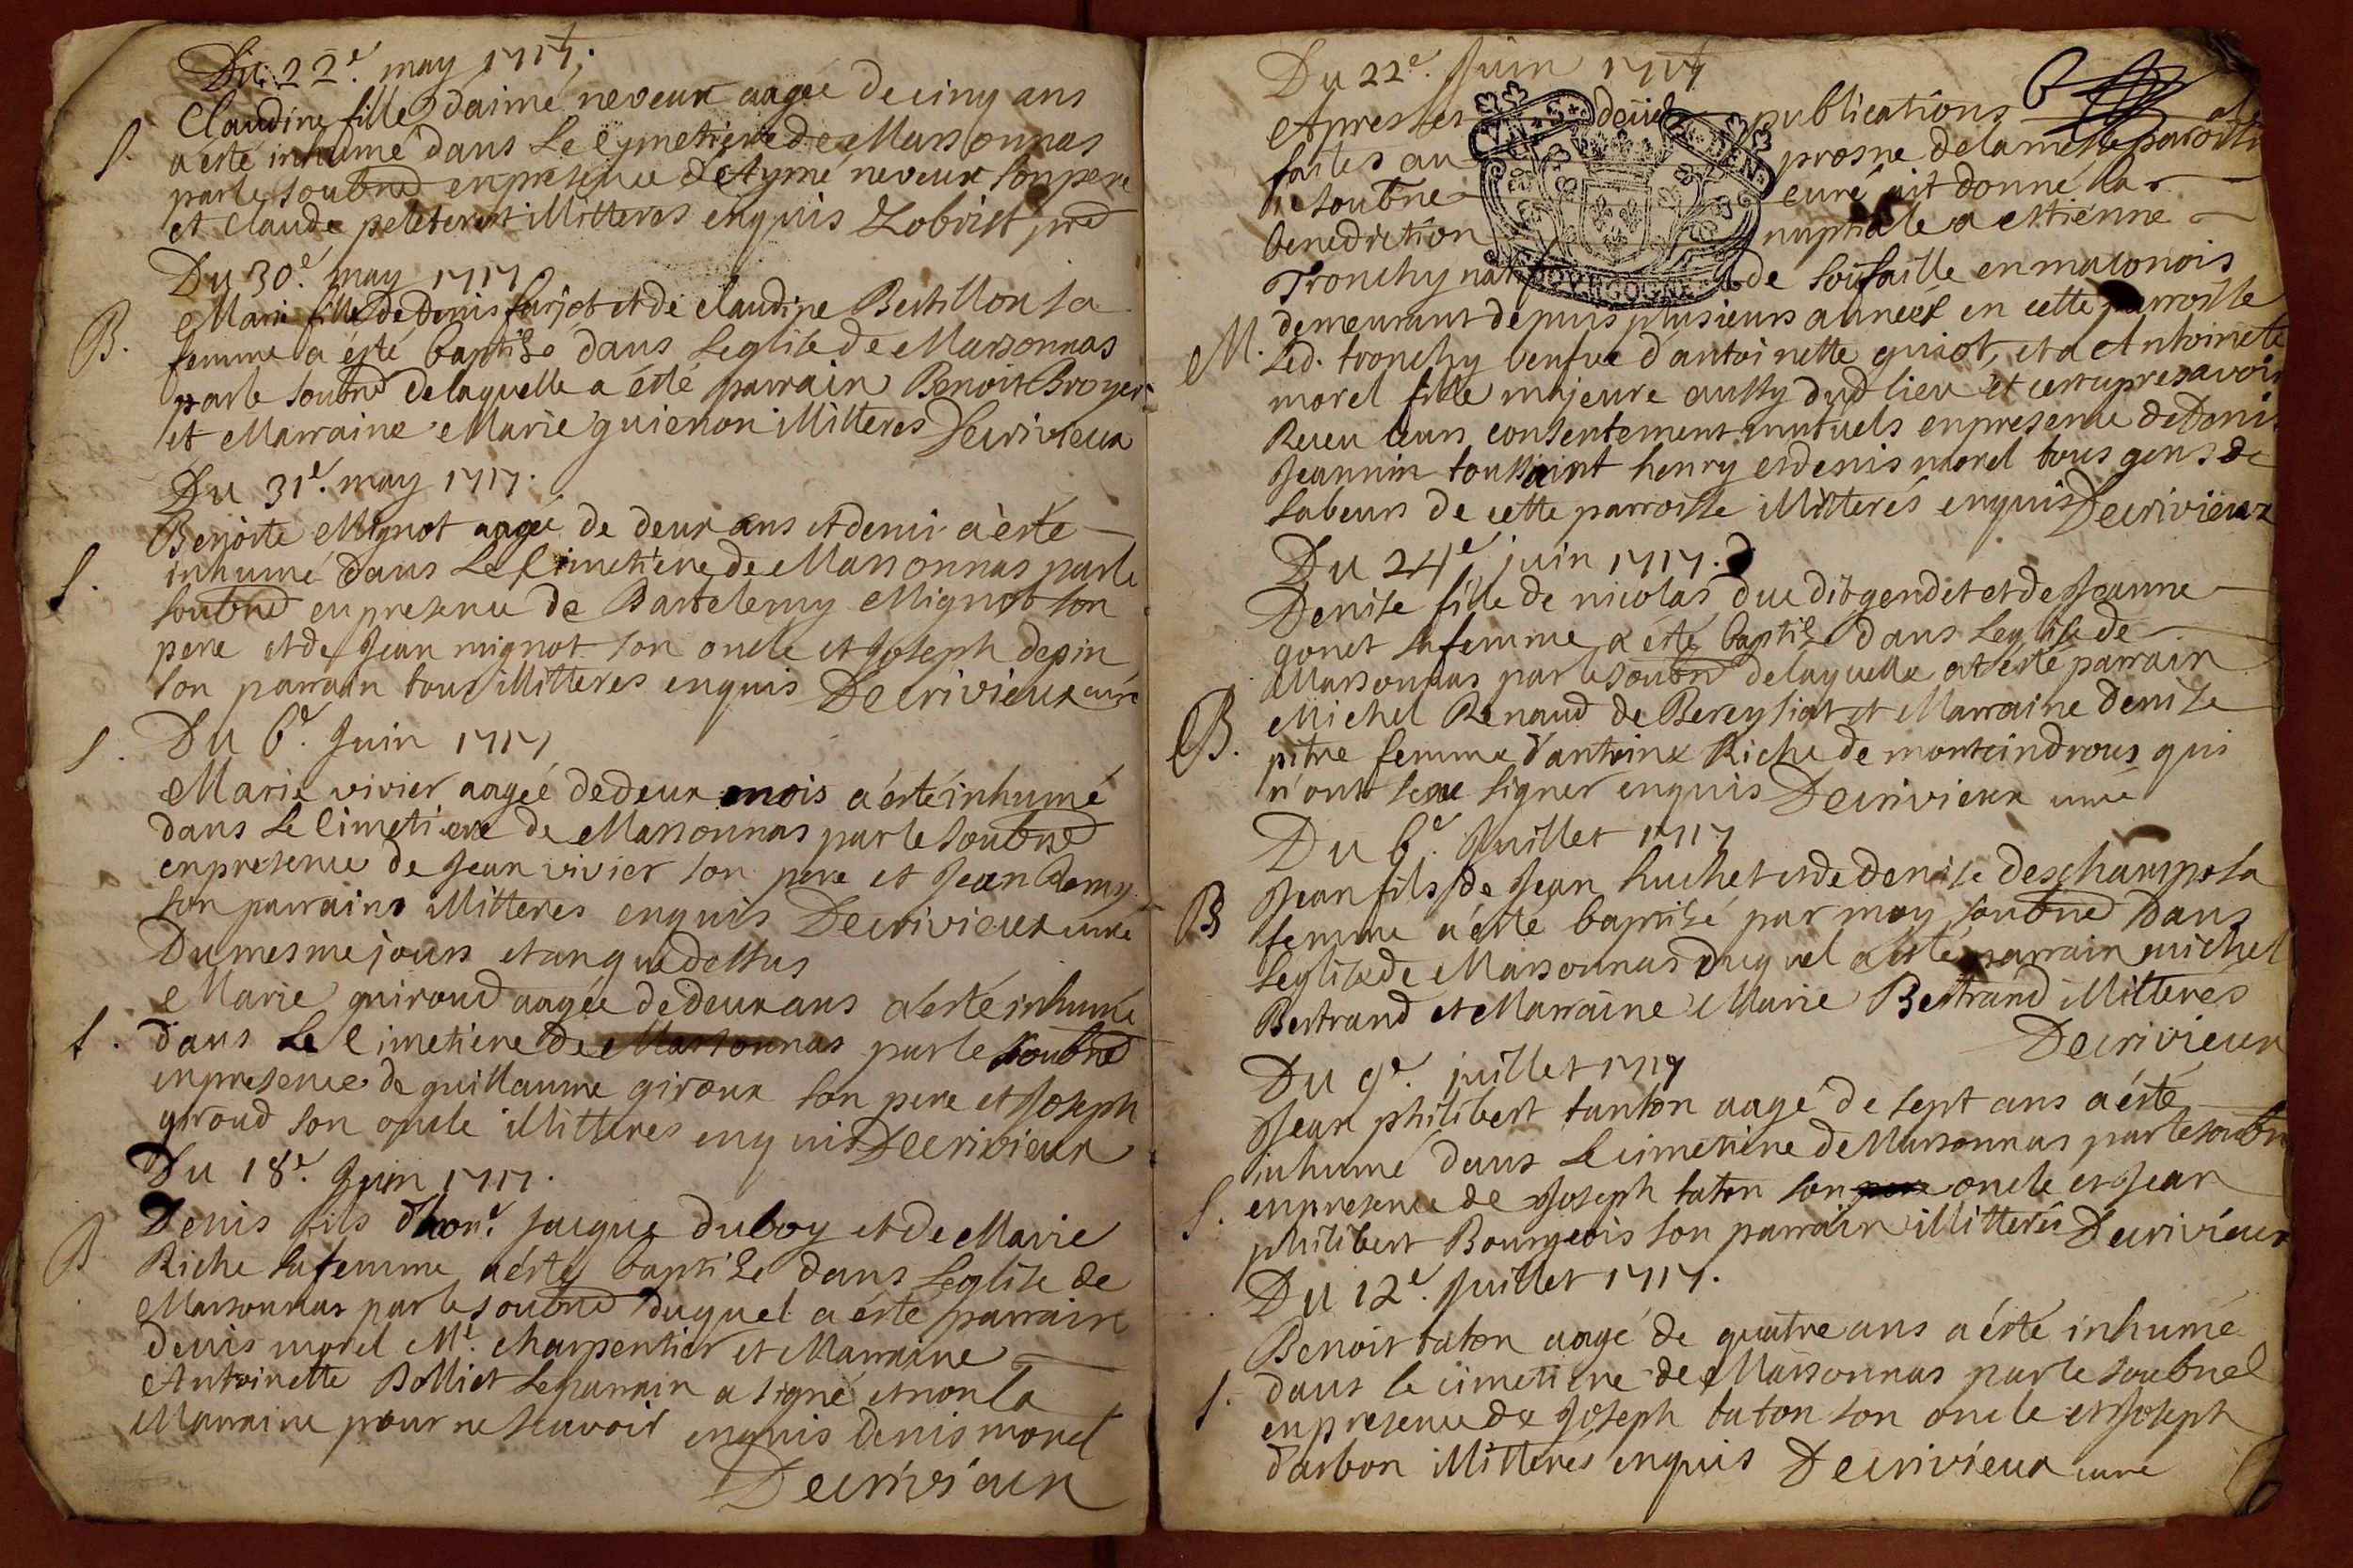 Du 22e. may 1717.
Claudine fille daimé neveux aagée de cinq ans
S. a esté inhumé dans Le Cymetiere de Marsonnas
par le soubné en presence d'Aymé neveux son pere
et Claude peleterat illitteres enquis
Du 30e. may 1717
Marie fille de Denis farjot et de claudine Bertillon sa
B. femme a ésté baptisé dans Leglise de Marsonnas
par le soubné de laquelle a ésté parrain Benoit Broyer
et Marraine Marie guienon illiteres Decrivieux
Du 31e. may 1717.
Benoite Mignot aagée de deux ans et demi a esté
S. inhumé dans Le Cimetiere de Marsonnas par le
soubné en presence de Bartelemy Mignot son
pere et de Jean mignot son oncle et Joseph depin
son parrain tous illitteres enquis Decrivieux curé
S. Du 6e. Juin 1717
Marie vivier aagée de deux mois a ésté inhumé
dans Le Cimetiere de Marsonnas par le soubné
en presence de Jean vivier son pere et Jean Remy
son parrains illitteres enquis Decrivieux curé
Du mesme jours et an que dessus
Marie guiroud aagée de deux ans a ésté inhumé
S. dans Le Cimetiere de Marsonnas par le soubné
en presence de guillaume giroux son pere et Joseph
giroud son oncle illitteres enquis Decrivieux
Du 18e. Juin 1717.
Denis fils d'hon. Jacque duboy et de Marie
B Riche sa femme a ésté baptisé dans Leglise de
Marsonnas par le soubné duquel a ésté parrain
denis morel Me. Charpentier et Marraine
Antoinette Bolliet Le parrain a signé et non la
Marraine pour ne scavoir enquis denis morel
Decrivieux
Du 22e. Juin 1717
Apres les deux publications
faites au prosne de la messe paroissi
le soubné curé ait donné la
benediction nuptiale a estienne
Tronchy natif de soüsaille en maconois
demeurant depuis plusieurs années en cette parroisse
M. Led. tronchy veufve d'antoinette guiot, et a Antoinette
morel fille majeure aussy dud lieu et ce apres avoir
Receu leurs consentement mutuels en presence de Denis
Jeannin toussaint henry et denis morel tous gens de
Labeurs de cette parroisse illitterés enquis Decrivieux
Du 24e. juin 1717.
Denise fille de nicolas duc dit gendet et de Jeanne
gonet sa femme a ésté baptisé dans Leglise de
Marsonnas par le soubné de laquelle at ésté parrain
Michel Renaud de Bereysiat et Marraine denise
B. pitre femme d'antoine Riche de montcindrous qui
n'ont sceue signer enquis Decrivieux curé
Du 6e. Juillet 1717
Jean fils de Jean huchet et de denise deschamps sa
B femme a ésté baptisé par moy soubné dans
Leglise de Marsonnas duquel a esté parrain michel
Bertrand et Marraine Marie Bertrand illitterés
Decrivieux
Du 9e. juillet 1717
Jean philibert tanton aagé de sept ans a ésté
inhumé dans Le cimetiere de Marsonnas par le soubn
S. en presence de Joseph taton son oncle et Jean
philibert Bourgeois son parrain illitterés Decrivieux
Du 12e. Juillet 1717.
Benoit taton aagé de quatre ans a ésté inhumé
S. dans le cimetiere de Marsonnas par le soubné
en presence de Joseph taton son oncle et Joseph
darbon illitterés enquis Decrivieux curé